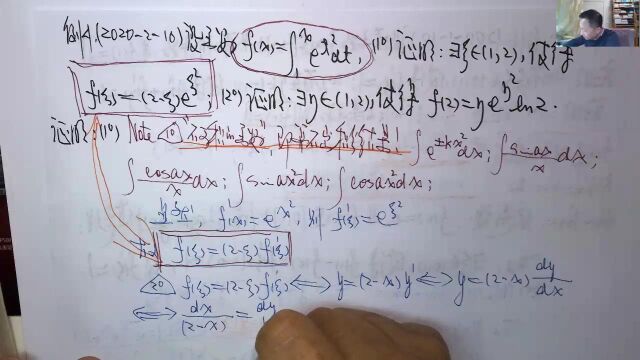 例4.(2020-2-10)设 f(x)=∫₁ˣ e^{t²}dt, (1)证明:∃ξ∈(1,2),使得
f(ξ)=(2-ξ)e^{ξ²}; (2)证明:∃η∈(1,2),使得 f(2)=ηe^{η²}ln2.
证明:(1) Note ① ∫e^{±kx²}dx; ∫(sinax/x)dx;
∫(cosax/x)dx; ∫sinax²dx; ∫cosax²dx;
f'(x)=e^{x²}, 则 f'(ξ)=e^{ξ²}
f(ξ)=(2-ξ)f'(ξ)
② f(ξ)=(2-ξ)f'(ξ)⟺y=(2-x)y'⟺y=(2-x)dy/dx
⟺dx/(2-x)=dy